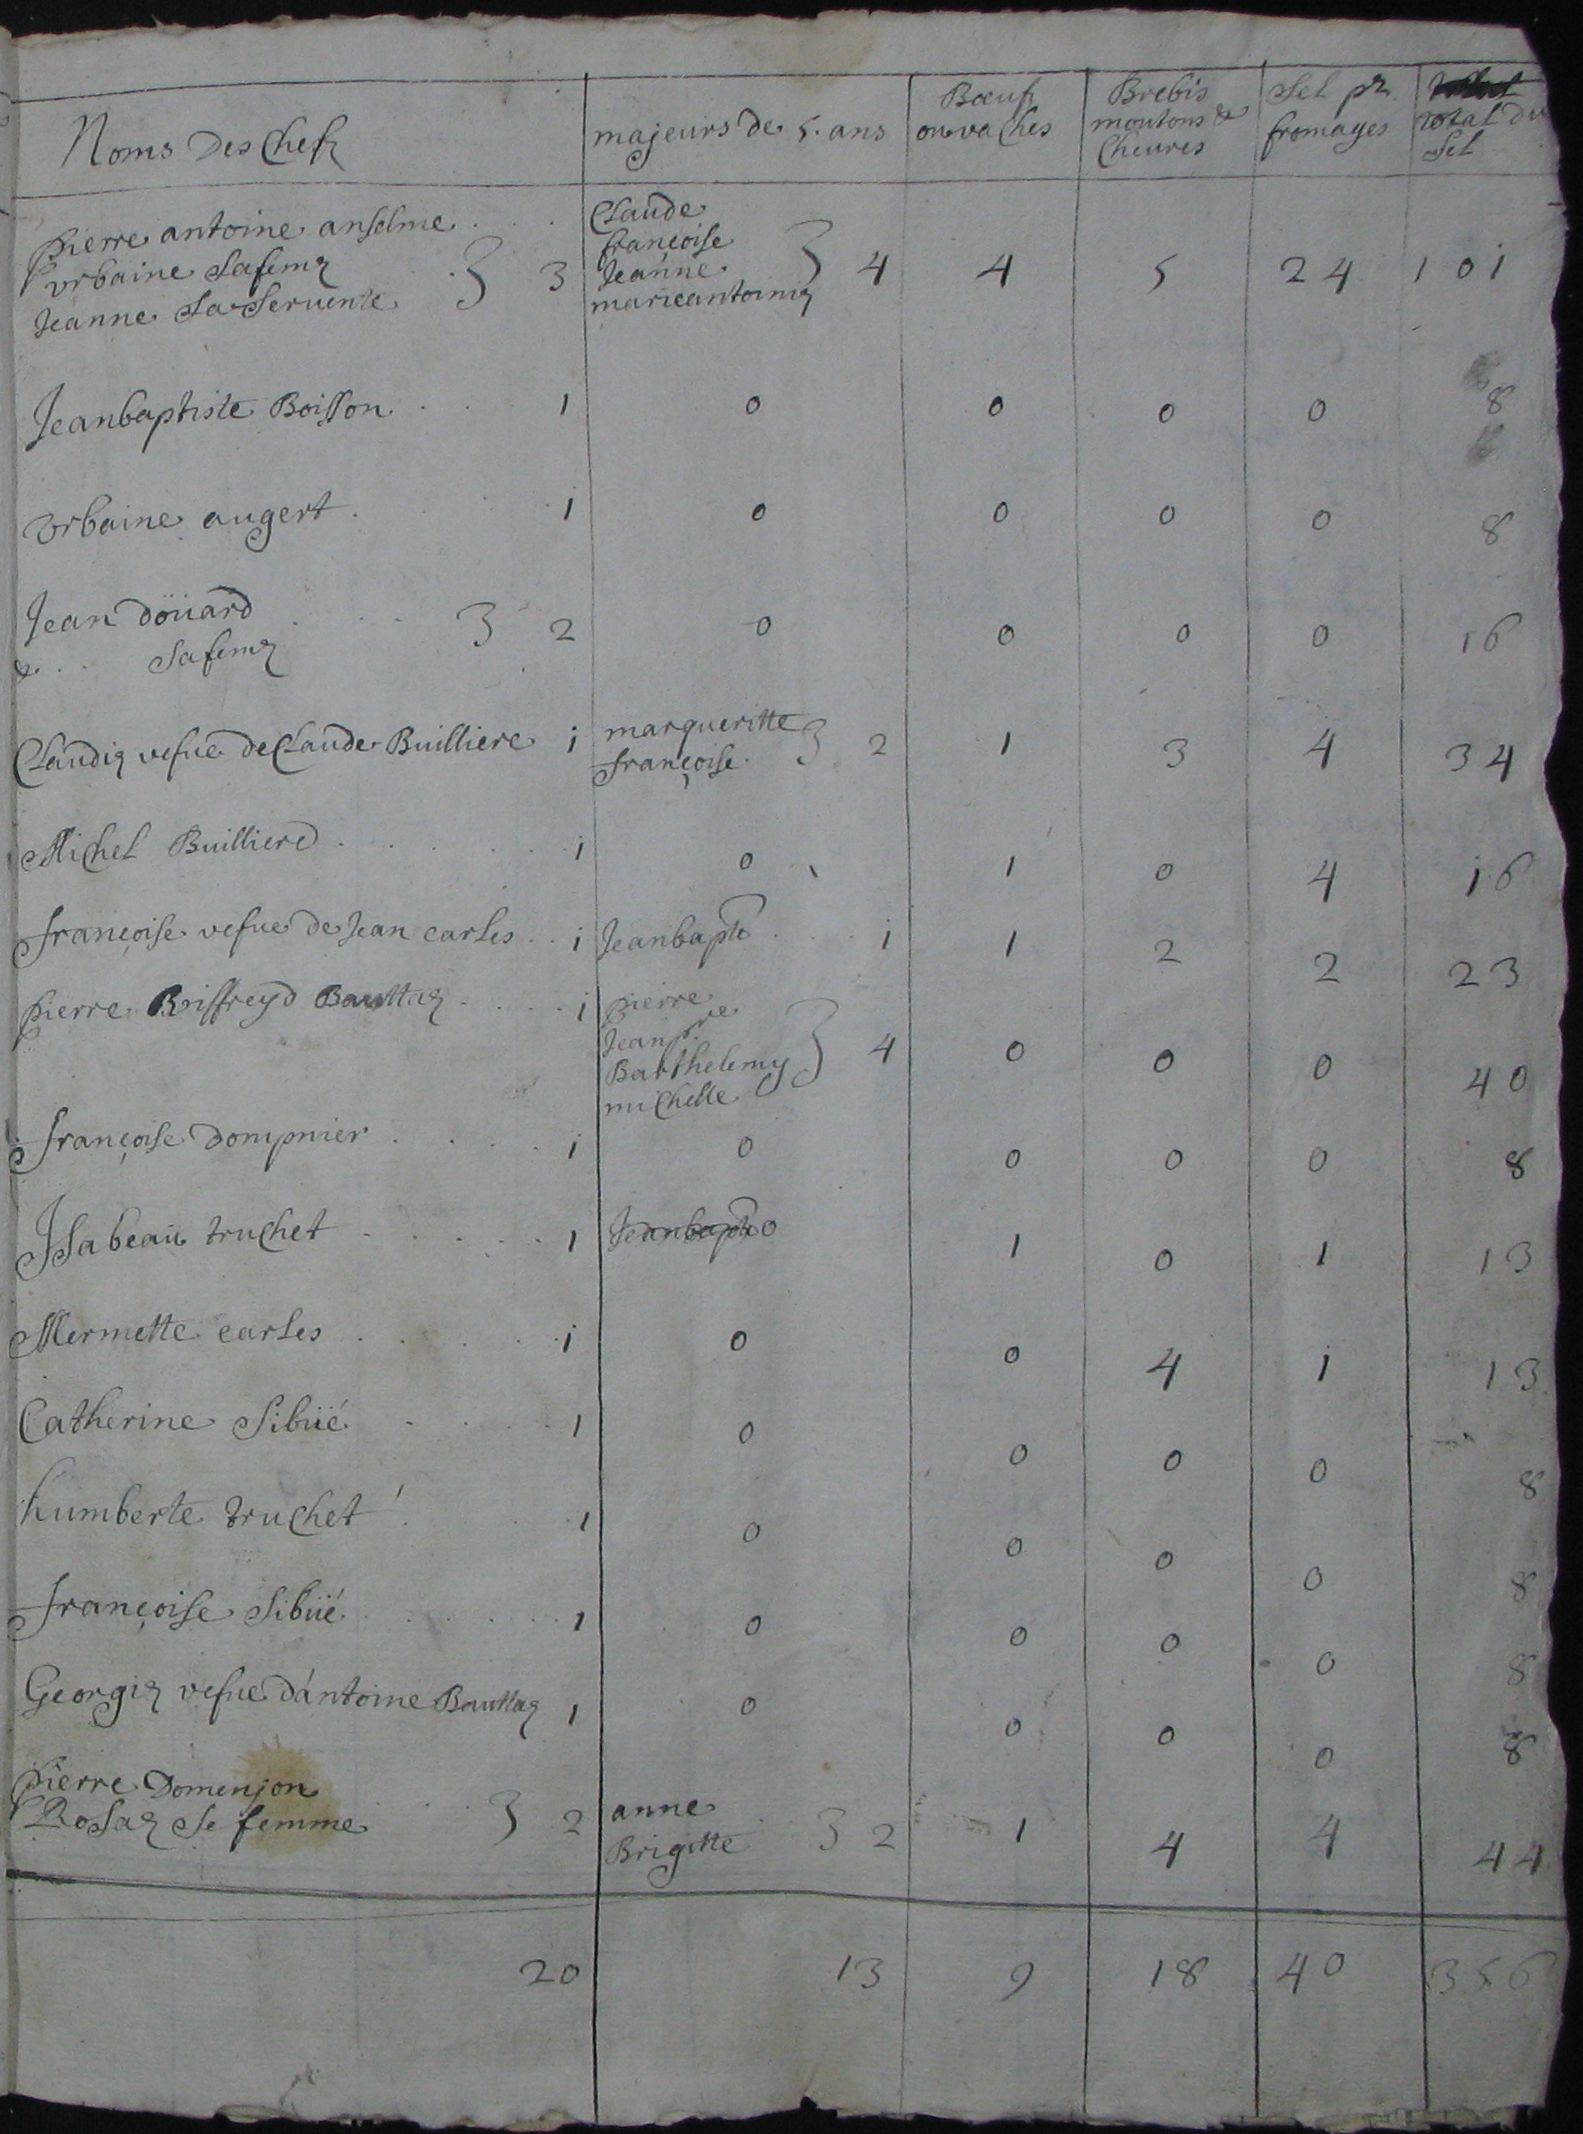 Noms Des Chefz | majeurs de 5. ans | Bœufz ou vaches | Brebis moutons & Cheures | Sel pr fromages | total du Sel
pierre antoine anselme . . . Claude
Vrbaine Safemz . 3 3 françoise 3 4 4 5 24 101
Jeanne Sa Seruente Jeanne
marieantoiniz
Jeanbaptiste Boisson . . 1 0 0 0 0 8
Vrbaine augert . . 1 0 0 0 0 8
Jean döüard . . . 3 2 0 0 0 0 16
& . . Safemz
Claudiz vefue de Claude Buillierd 1 margueritte 3 2 1 3 4 34
françoise
Michel Buillierd . . . . . 1 0 1 0 4 16
françoise vefue de Jean carles . . 1 Jeanbapte . . . 1 1 2 2 23
pierre Boiffreyd Bauttaz . . . . 1 pierre
Jean pre
Barthelemy 3 4 0 0 0 40
michelle
françoise dompnier . . . . 1 0 0 0 0 8
Jsabeau truchet . . . . . 1 Jeanbapte 0 1 0 1 13
Mermette carles . . . . 1 0 0 4 1 13
Catherine Sibüé . . . . 1 0 0 0 0 8
humberte truchet . . 1 0 0 0 0 8
françoise Sibüé . . . . . 1 0 0 0 0 8
Georgiz vefue dántoine Bauttaz 1 0 0 0 0 8
pierre Domenjon anne
Rosaz Se femme . . 3 2 Brigitte 3 2 1 4 4 44
20 13 9 18 40 356